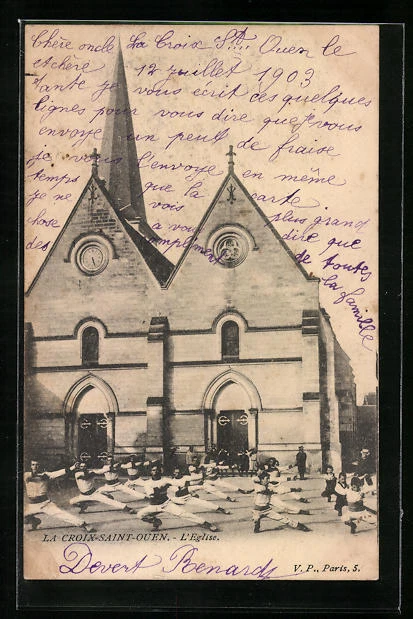 Chère oncle La Croix St Ouen le
et chère 12 juillet 1903
tante je vous écrit ces quelques
lignes pour vous dire que je vous
envoye un peut de fraise
je vous l'envoye en même
temps que la carte
je ne vois plus grand
chose a vous dire que
des compliment de toutes
la famille
LA CROIX-SAINT-OUEN. - L'Eglise.
Devert Benard
V. P., Paris, 5.